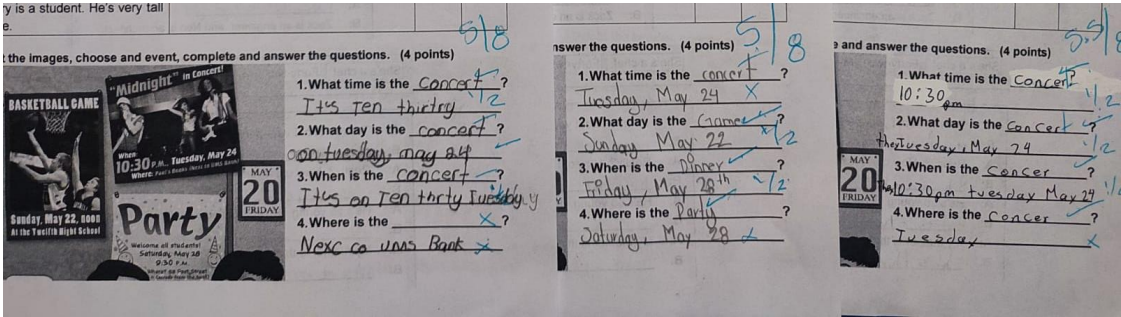 ry is a student. He's very tall
e.
5/8
t the images, choose and event, complete and answer the questions. (4 points)
BASKETBALL GAME
Sunday, May 22, noon
At the Twelfth Night School
"Midnight" in Concert!
When:
10:30 P.M. Tuesday, May 24
Where: Paul's Books (Next to UMS Bank)
MAY
20
FRIDAY
Party
Welcome all students!
Saturday, May 28
9:30 P.M.
1.What time is the Concert ?
1/2
It's Ten thirtry
2.What day is the concert ?
on tuesday, may 24
3.When is the concert ?
It's on Ten thrty Tuesday
4.Where is the ?
Nexc co ums Bank
nswer the questions. (4 points)
5/8
1.What time is the concert ?
Tuesday, May 24
2.What day is the Game ?
1/2
Sunday May 22
3.When is the Dinner ?
Friday, May 20th
1/2
4.Where is the Party ?
Saturday, May 28
e and answer the questions. (4 points)
5.5/8
MAY
20
FRIDAY
1.What time is the Concert?
10:30 pm
1/2
2.What day is the Concert ?
the Tuesday, May 24
1/2
3.When is the Concer ?
the 10:30pm tuesday May 24
4.Where is the Concer ?
Tuesday